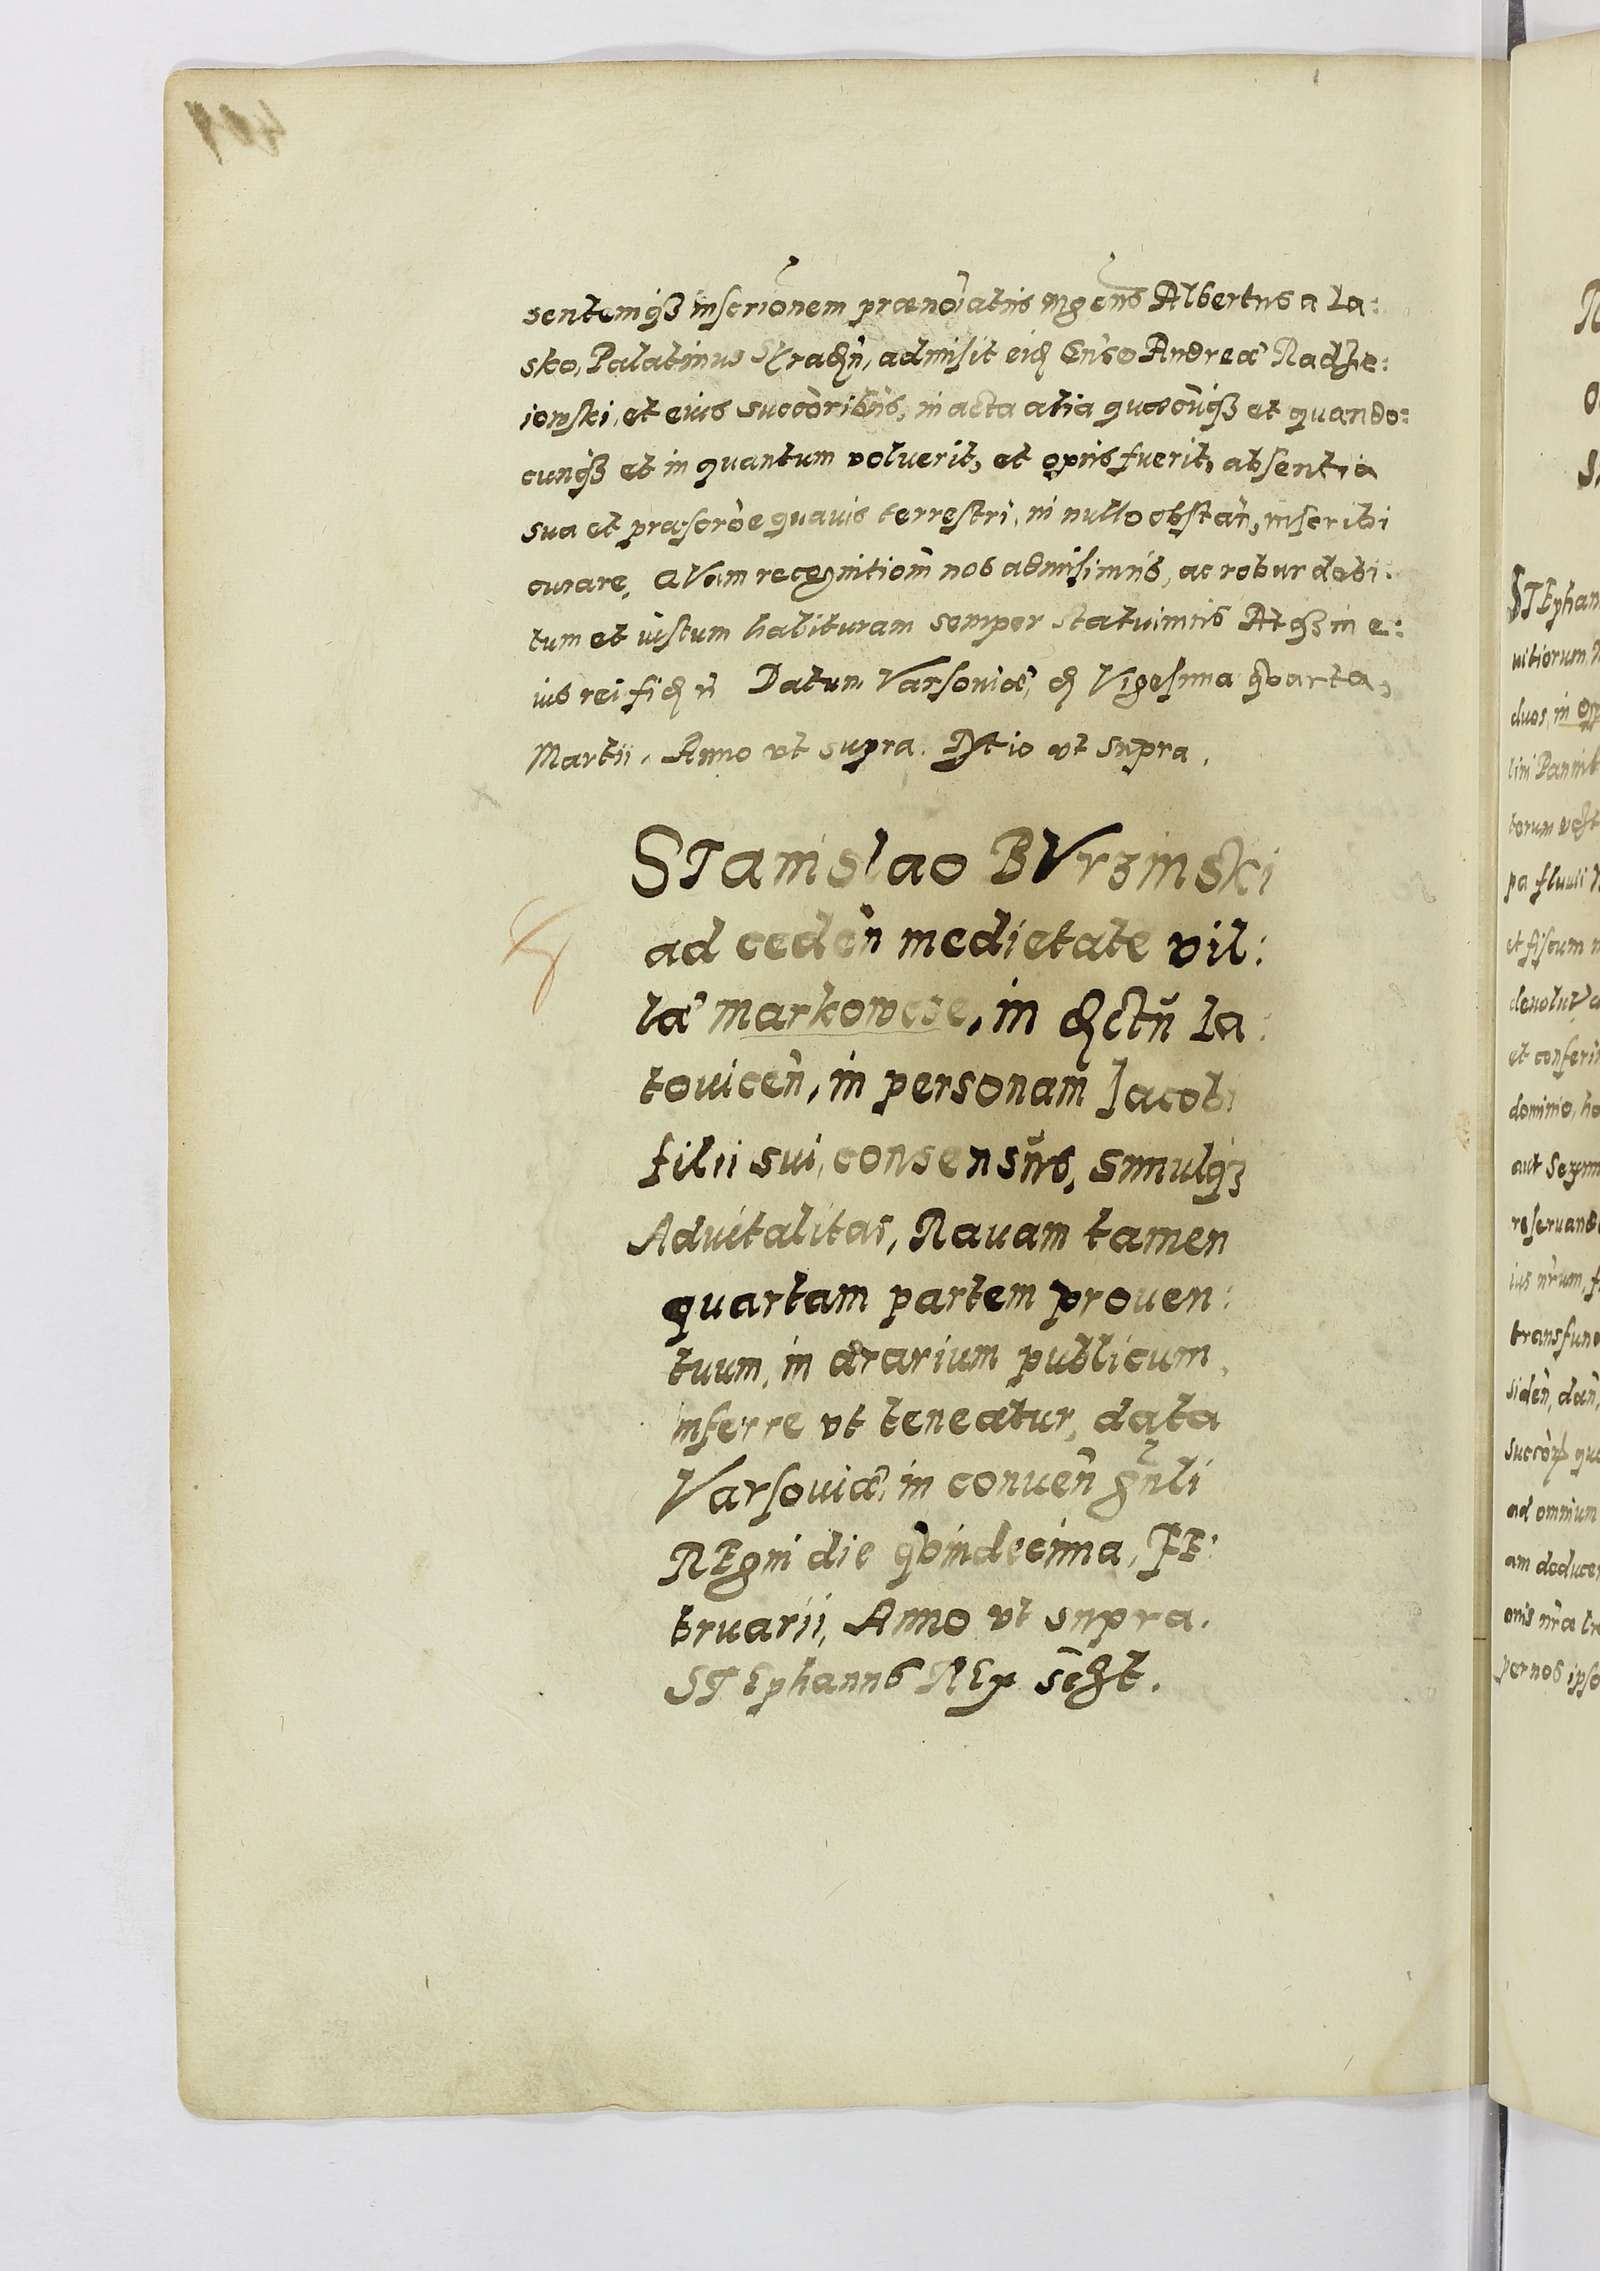 sentemq₃ inscrionem prænoiatus mgcus Albertus a La:
sko, Palatinus Syradn̄, admisit eid Gnso Andreæ Radze:
iowski, et eius succoribus, in acta alia quæcunq₃ et quando:
cunq₃ et in quantum voluerit, et opus fuerit, absentia
sua et præscrõe quauis terrestri, in nullo obstan̄, inscribi
curare, QVam recognitiom̄ nos admisimus, ac robur debi:
tum et iustum habituram semper statuimus Atq₃ in e:
ius rei fid n̄ Datum Varsouiæ, d Vigesima qvarta,
Martii, Anno vt supra. Rltio vt supra.
STanislao BVrzinski
ad ceden̄ medietate vil:
læ Markowcse, in dctu La:
touicen̄, in personam Jacobi
filii sui, consensus, simulq₃
Aduitalitas, Rauam tamen
quartam partem prouen:
tuum, in ærarium publicum,
inferre vt teneatur, data
Varsouiæ, in conuen̄ gn̄li
REgni die qvindecima, FE:
bruarii, Anno vt supra.
STEphanus REx sc̄gt.
STEphan
uitiorum
duos, in
lini
torum
pa fluuii
et fiscum
et
dominio,
aut
reseruand
ius nr̄um,
transfun
siden̄, dan̄,
ad omnium
am deducer
onis nr̄a
per nos ipso